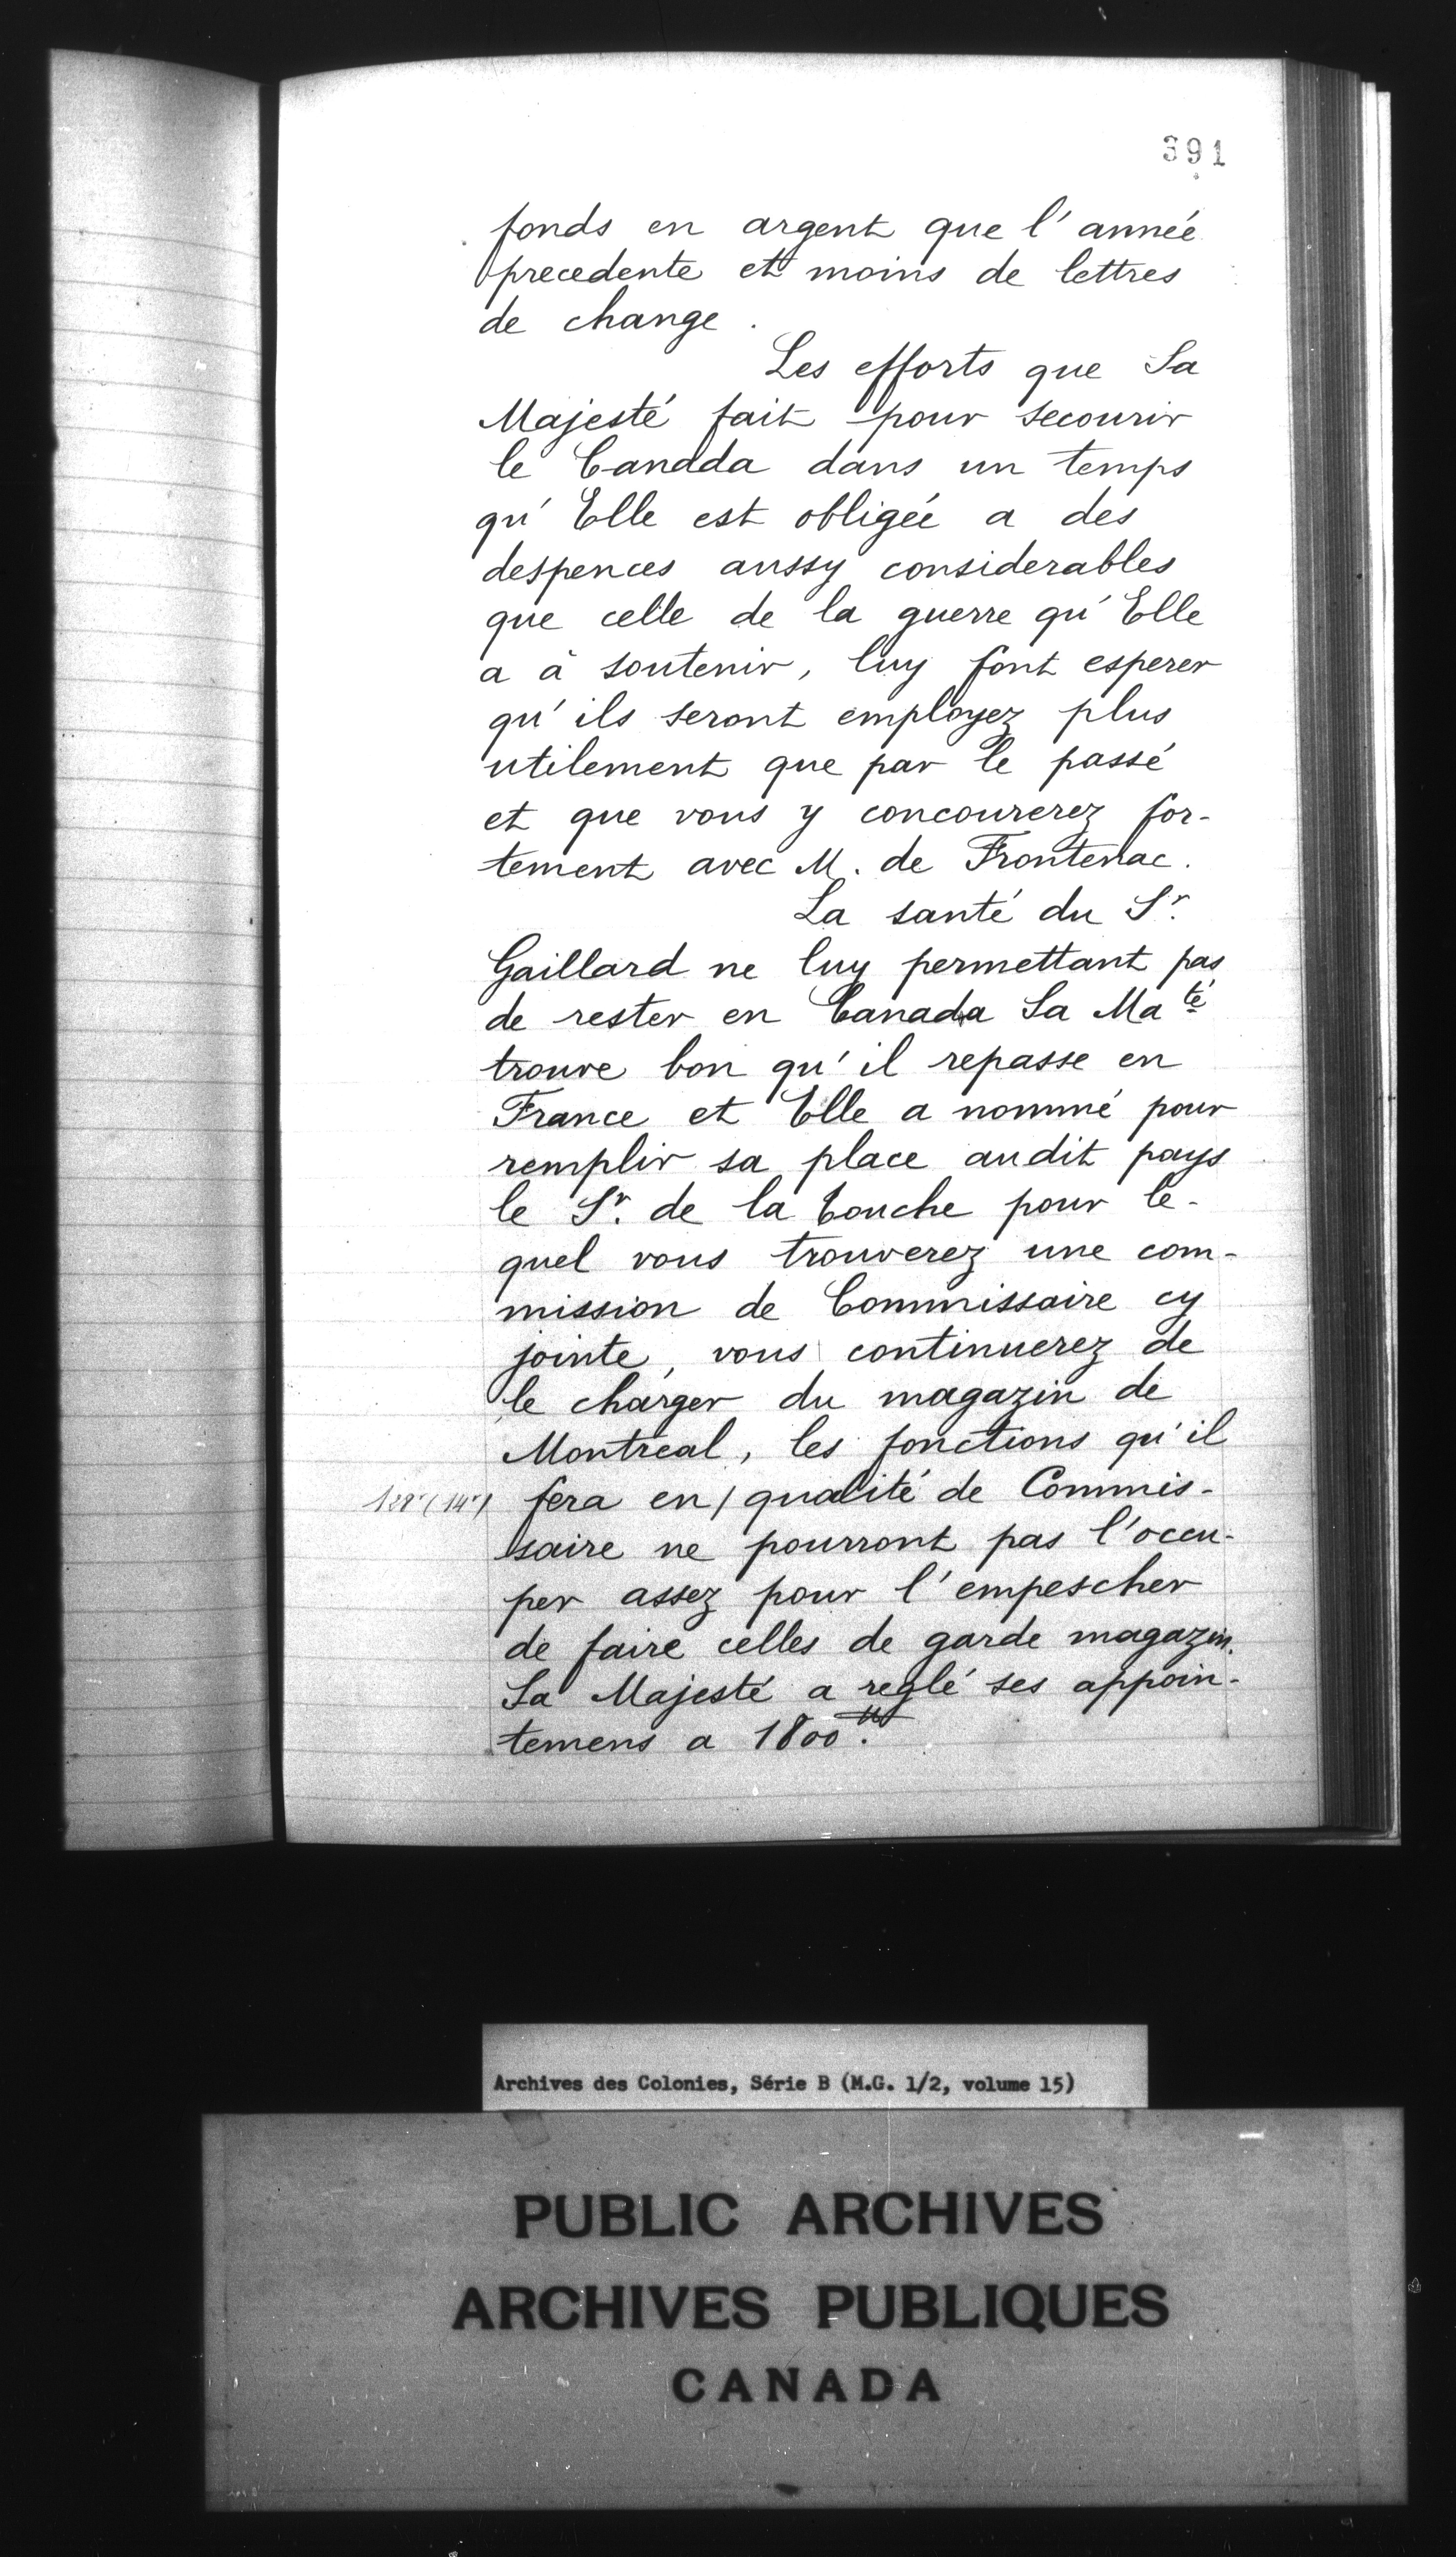 391
fonds en argent que l'année
precedente et moins de lettres
de change.
Les efforts que Sa
Majesté fait pour secourir
le Canada dans un temps
qu'Elle est obligée a des
despences aussy considerables
que celle de la guerre qu'Elle
a à soutenir, luy font esperer
qu'ils seront employez plus
utilement que par le passé
et que vous y concourerez for-
tement avec M. de Frontenac.
La santé du Sr.
Gaillard ne luy permettant pas
de rester en Canada Sa Maté
trouve bon qu'il repasse en
France et Elle a nommé pour
remplir sa place audit pays
le Sr. de la Touche pour le-
quel vous trouverez une com-
mission de Commissaire cy
jointe, vous continuerez de
le charger du magazin de
Montreal, les fonctions qu'il
fera en/qualité de Commis-
saire ne pourront pas l'occu-
per assez pour l'empescher
de faire celles de garde magazin.
Sa Majesté a reglé ses appoin-
temens a 1800.tt
Archives des Colonies, Série B (M.G. 1/2, volume 15)
PUBLIC ARCHIVES
ARCHIVES PUBLIQUES
CANADA